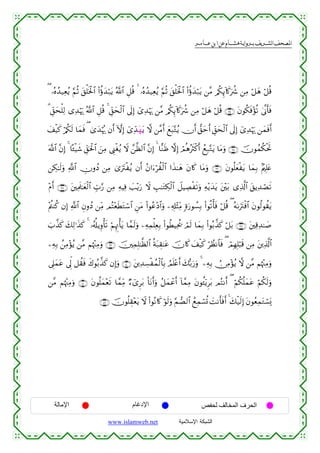 المصحف الشريف برواية هشام عن ابن عامر
قُلْ هَلْ مِن شُرَكَآئِكُم مَّن يَبْدَؤُا۟ ٱلْخَلْقَ ثُمَّ يُعِيدُهُۥ ۚ قُلِ ٱللَّهُ يَبْدَؤُا۟ ٱلْخَلْقَ ثُمَّ يُعِيدُهُۥ ۖ
فَأَنَّىٰ تُؤْفَكُونَ قُلْ هَلْ مِن شُرَكَآئِكُم مَّن يَهْدِىٓ إِلَى ٱلْحَقِّ ۚ قُلِ ٱللَّهُ يَهْدِى لِلْحَقِّ ۗ
أَفَمَن يَهْدِىٓ إِلَى ٱلْحَقِّ أَحَقُّ أَن يُتَّبَعَ أَمَّن لَّا يَهَدِّىٓ إِلَّآ أَن يُهْدَىٰ ۖ فَمَا لَكُمْ كَيْفَ
تَحْكُمُونَ وَمَا يَتَّبِعُ أَكْثَرُهُمْ إِلَّا ظَنًّا ۚ إِنَّ ٱلظَّنَّ لَا يُغْنِى مِنَ ٱلْحَقِّ شَيْـًٔا ۚ إِنَّ ٱللَّهَ
عَلِيمٌۢ بِمَا يَفْعَلُونَ وَمَا كَانَ هَٰذَا ٱلْقُرْءَانُ أَن يُفْتَرَىٰ مِن دُونِ ٱللَّهِ وَلَٰكِن
تَصْدِيقَ ٱلَّذِى بَيْنَ يَدَيْهِ وَتَفْصِيلَ ٱلْكِتَٰبِ لَا رَيْبَ فِيهِ مِن رَّبِّ ٱلْعَٰلَمِينَ أَمْ
يَقُولُونَ ٱفْتَرَىٰهُ ۖ قُلْ فَأْتُوا۟ بِسُورَةٍ مِّثْلِهِۦ وَٱدْعُوا۟ مَنِ ٱسْتَطَعْتُم مِّن دُونِ ٱللَّهِ إِن كُنتُمْ
صَٰدِقِينَ بَلْ كَذَّبُوا۟ بِمَا لَمْ يُحِيطُوا۟ بِعِلْمِهِۦ وَلَمَّا يَأْتِهِمْ تَأْوِيلُهُۥ ۚ كَذَٰلِكَ كَذَّبَ
ٱلَّذِينَ مِن قَبْلِهِمْ ۖ فَٱنظُرْ كَيْفَ كَانَ عَٰقِبَةُ ٱلظَّٰلِمِينَ وَمِنْهُم مَّن يُؤْمِنُ بِهِۦ
وَمِنْهُم مَّن لَّا يُؤْمِنُ بِهِۦ ۚ وَرَبُّكَ أَعْلَمُ بِٱلْمُفْسِدِينَ وَإِن كَذَّبُوكَ فَقُل لِّى عَمَلِى
وَلَكُمْ عَمَلُكُمْ ۖ أَنتُم بَرِيٓـُٔونَ مِمَّآ أَعْمَلُ وَأَنَا۠ بَرِىٓءٌ مِّمَّا تَعْمَلُونَ وَمِنْهُم مَّن
يَسْتَمِعُونَ إِلَيْكَ ۚ أَفَأَنتَ تُسْمِعُ ٱلصُّمَّ وَلَوْ كَانُوا۟ لَا يَعْقِلُونَ
الحرف المخالف لحفص الإدغام الإمالة
الشبكة الإسلامية www.islamweb.net